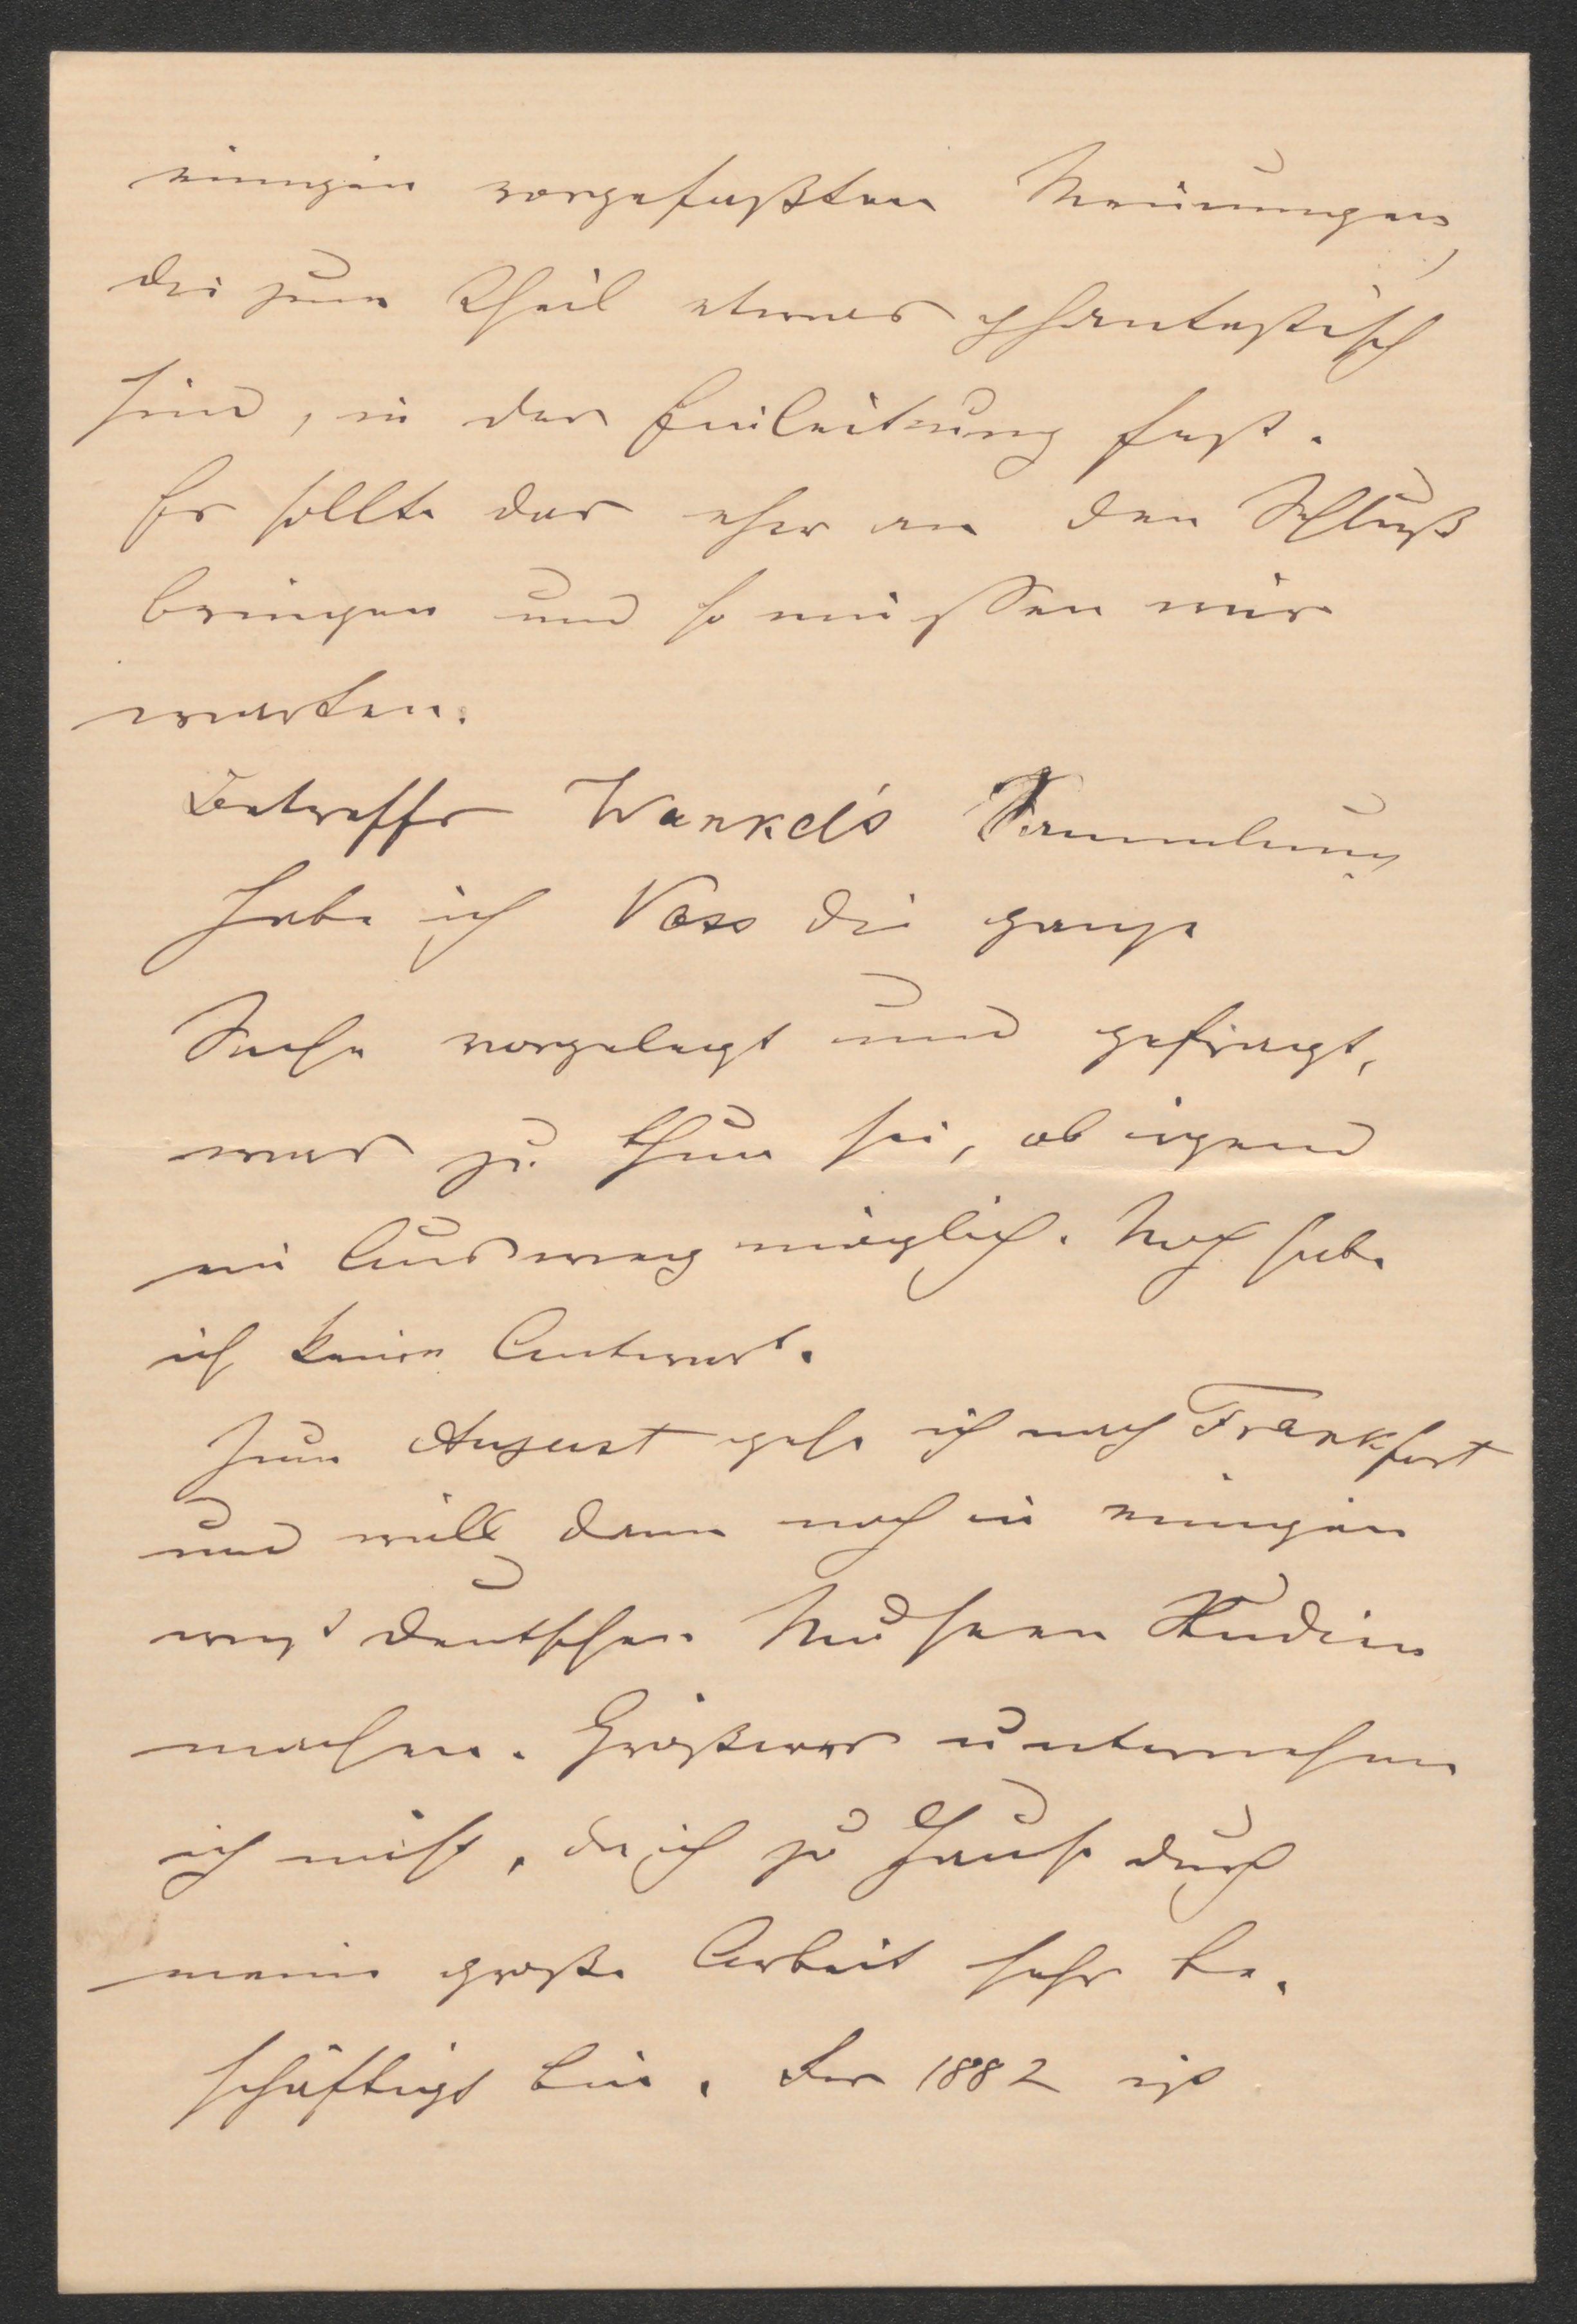 einigen vorgefaßten Meinungen,
die zum Theil etwas phantastisch
sind, in der Einleitung fest.
Er sollte das eher an den Schluß
bringen und so müssen wir
warten.
Betreffs Wankel's Sammlung
habe ich Voss die ganze
Sache vorgelegt und gefragt,
was zu thun sei, ob irgend
ein Ausweg möglich. Noch habe
ich keine Antwort.
Zum August gehe ich nach Frankfurt
und will dann noch in einigen
westdeutschen Museen Studien
machen. Größeres unternehme
ich nicht, da ich zu Hause durch
meine große Arbeit sehr be-
schäftigt bin. Der 1882 ist